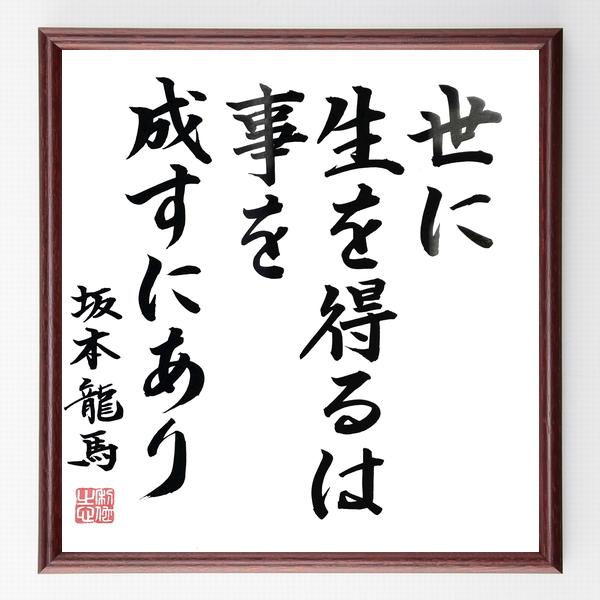 世に
生を得るは
事を
成すにあり
坂本龍馬